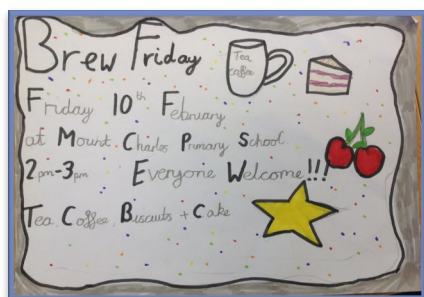 Brew Friday
Tea
coffee
Friday 10th February
at Mount Charles Primary School
2pm-3pm Everyone Welcome!!!
Tea, Coffee, Biscuits + Cake